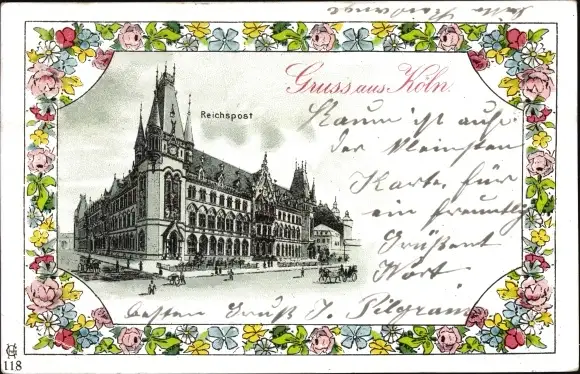 Bitte
Gruss aus Köln.
Reichspost
Kaum ist auf
der kleinsten
Karte für
ein freundlig
Grüßend
Wort.
besten Gruß J. Pilgram
118